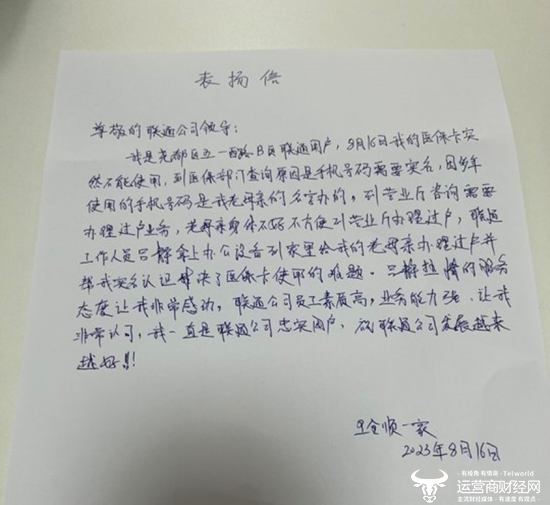 表扬信
尊敬的联通公司领导:
我是尧都区五一西路B区联通用户,8月16日我的医保卡突
然不能使用,到医保部门查询原因是手机号码需要实名,因多年
使用的手机号码是我老母亲的名字办的,到营业厅咨询需要
办理过户业务,老母亲身体不好不方便到营业厅办理过户,联通
工作人员吕静拿上办公设备到家里给我的老母亲办理过户并
帮我实名认证解决了医保卡使用的难题。吕静热情的服务
态度让我非常感动,联通公司员工素质高,业务能力强、让我
非常认可,我一直是联通公司忠实用户,祝联通公司发展越来
越好!!!
全顺一家
2023年8月16日
·有视角 有情商·Telworld
运营商财经网
主流财经媒体·有速度 有观点·